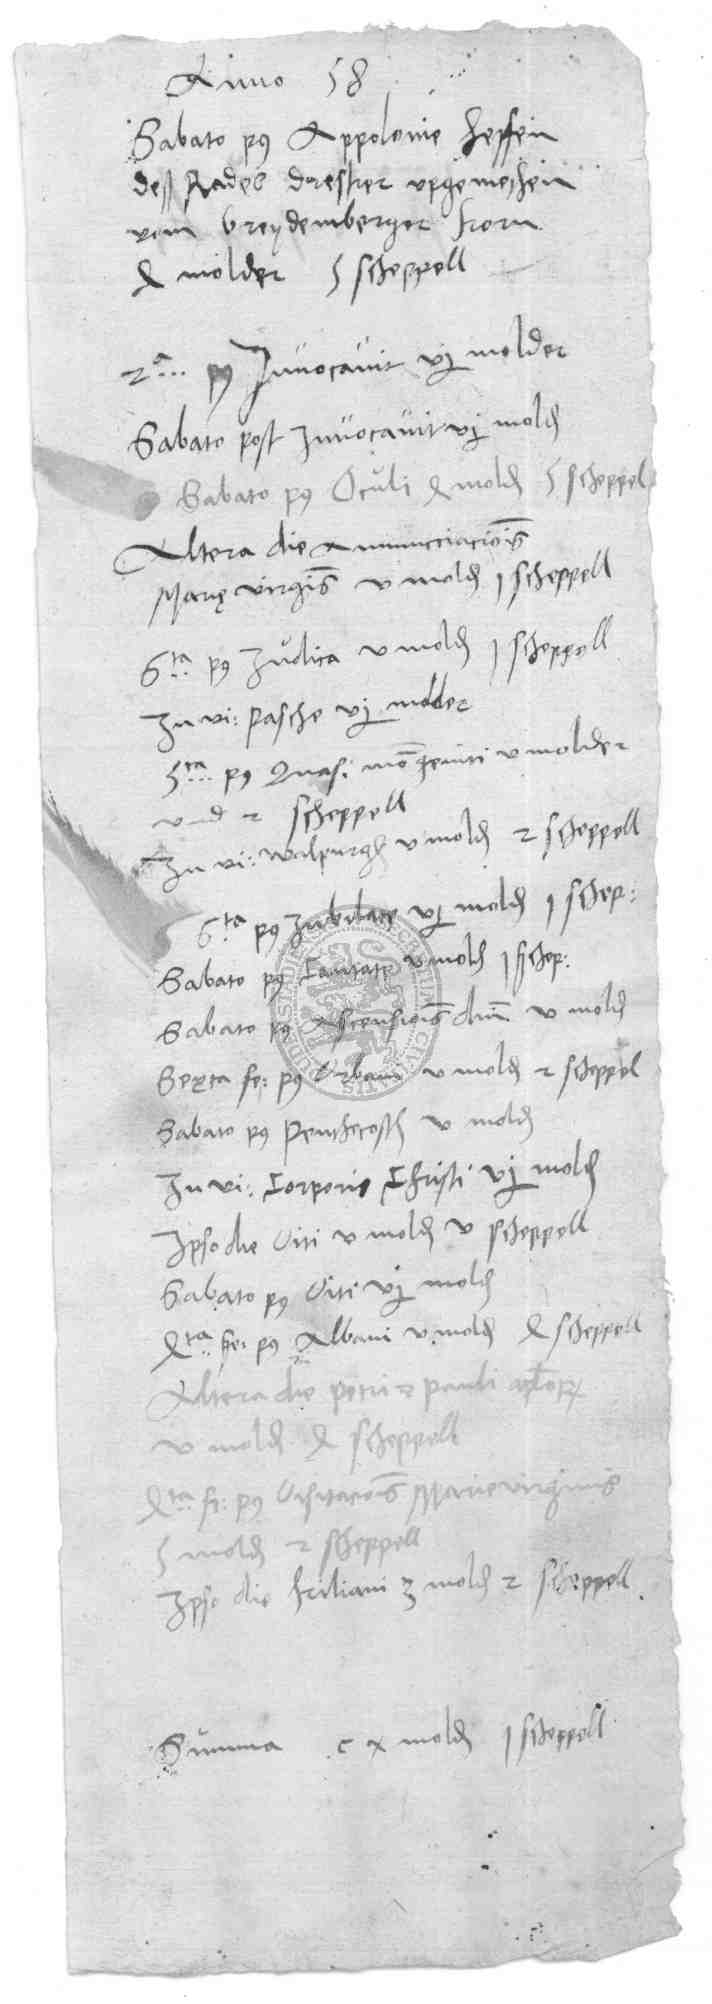 Anno 58
Sabato p9 Appolonie heffen
deß Rades dresker upgemeshen
vom breydemberger korn
8 molder 5 scheppell
2ᵃ p9 Invocavit vj molder
Sabato post Invocavit vj mold
Sabato p9 Oculi 8 mold 5 scheppel
Altera die Annucciacois
Marię virgis v mold j scheppell
6ta p9 Judica v mold j scheppell
In vi: Pasche vj molder
5ta p9 Quasi mogeniti v molder
und 2 scheppell
In vi: walpurg v mold 2 scheppell
6ta p9 Jubilate vj mold j schep:
Sabato p9 Cantate v mold j schep:
Sabato p9 Ascensiois dni v mold
Sexta fe: p9 Urbani v mold 2 scheppel
Sabato p9 Penthecost v mold
In vi: Corporis Christi vj mold
Ipso die Viti v mold v scheppell
Sabato p9 Viti vj mold
8ta fe: p9 Albani v mold 8 scheppell
Altera die petri 2 pauli aplor
v mold 8 scheppell
8ta fe: p9 Visitacois Marie virginis
5 mold 2 scheppell
Ipso die kiliani 3 mold 2 scheppell
Summa c x mold j scheppell